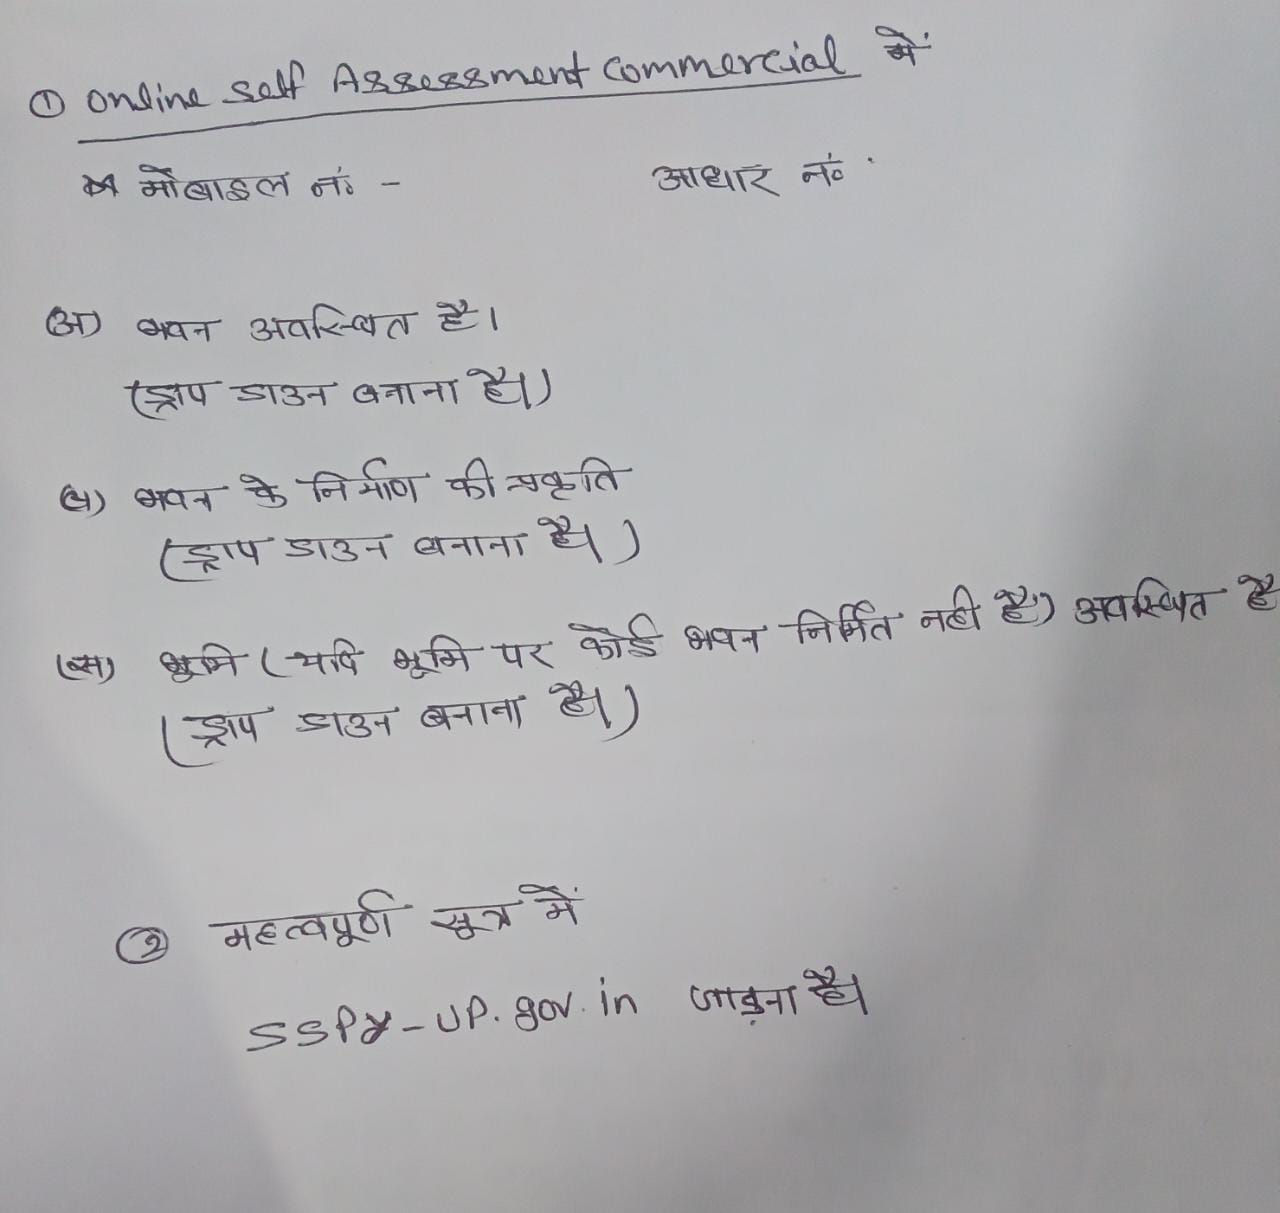 ① Online Self Assessment Commercial में
मोबाइल नं॰ - आधार नं॰
(अ) भवन अवस्थित है।
(ड्राप डाउन बनाना है।)
(ब) भवन के निर्माण की प्रकृति
(ड्राप डाउन बनाना है।)
(स) भूमि (यदि भूमि पर कोई भवन निर्मित नही है) अवस्थित है
(ड्राप डाउन बनाना है।)
② महत्वपूर्ण सूत्र में
SSPY-UP.gov.in जाड़ना है।